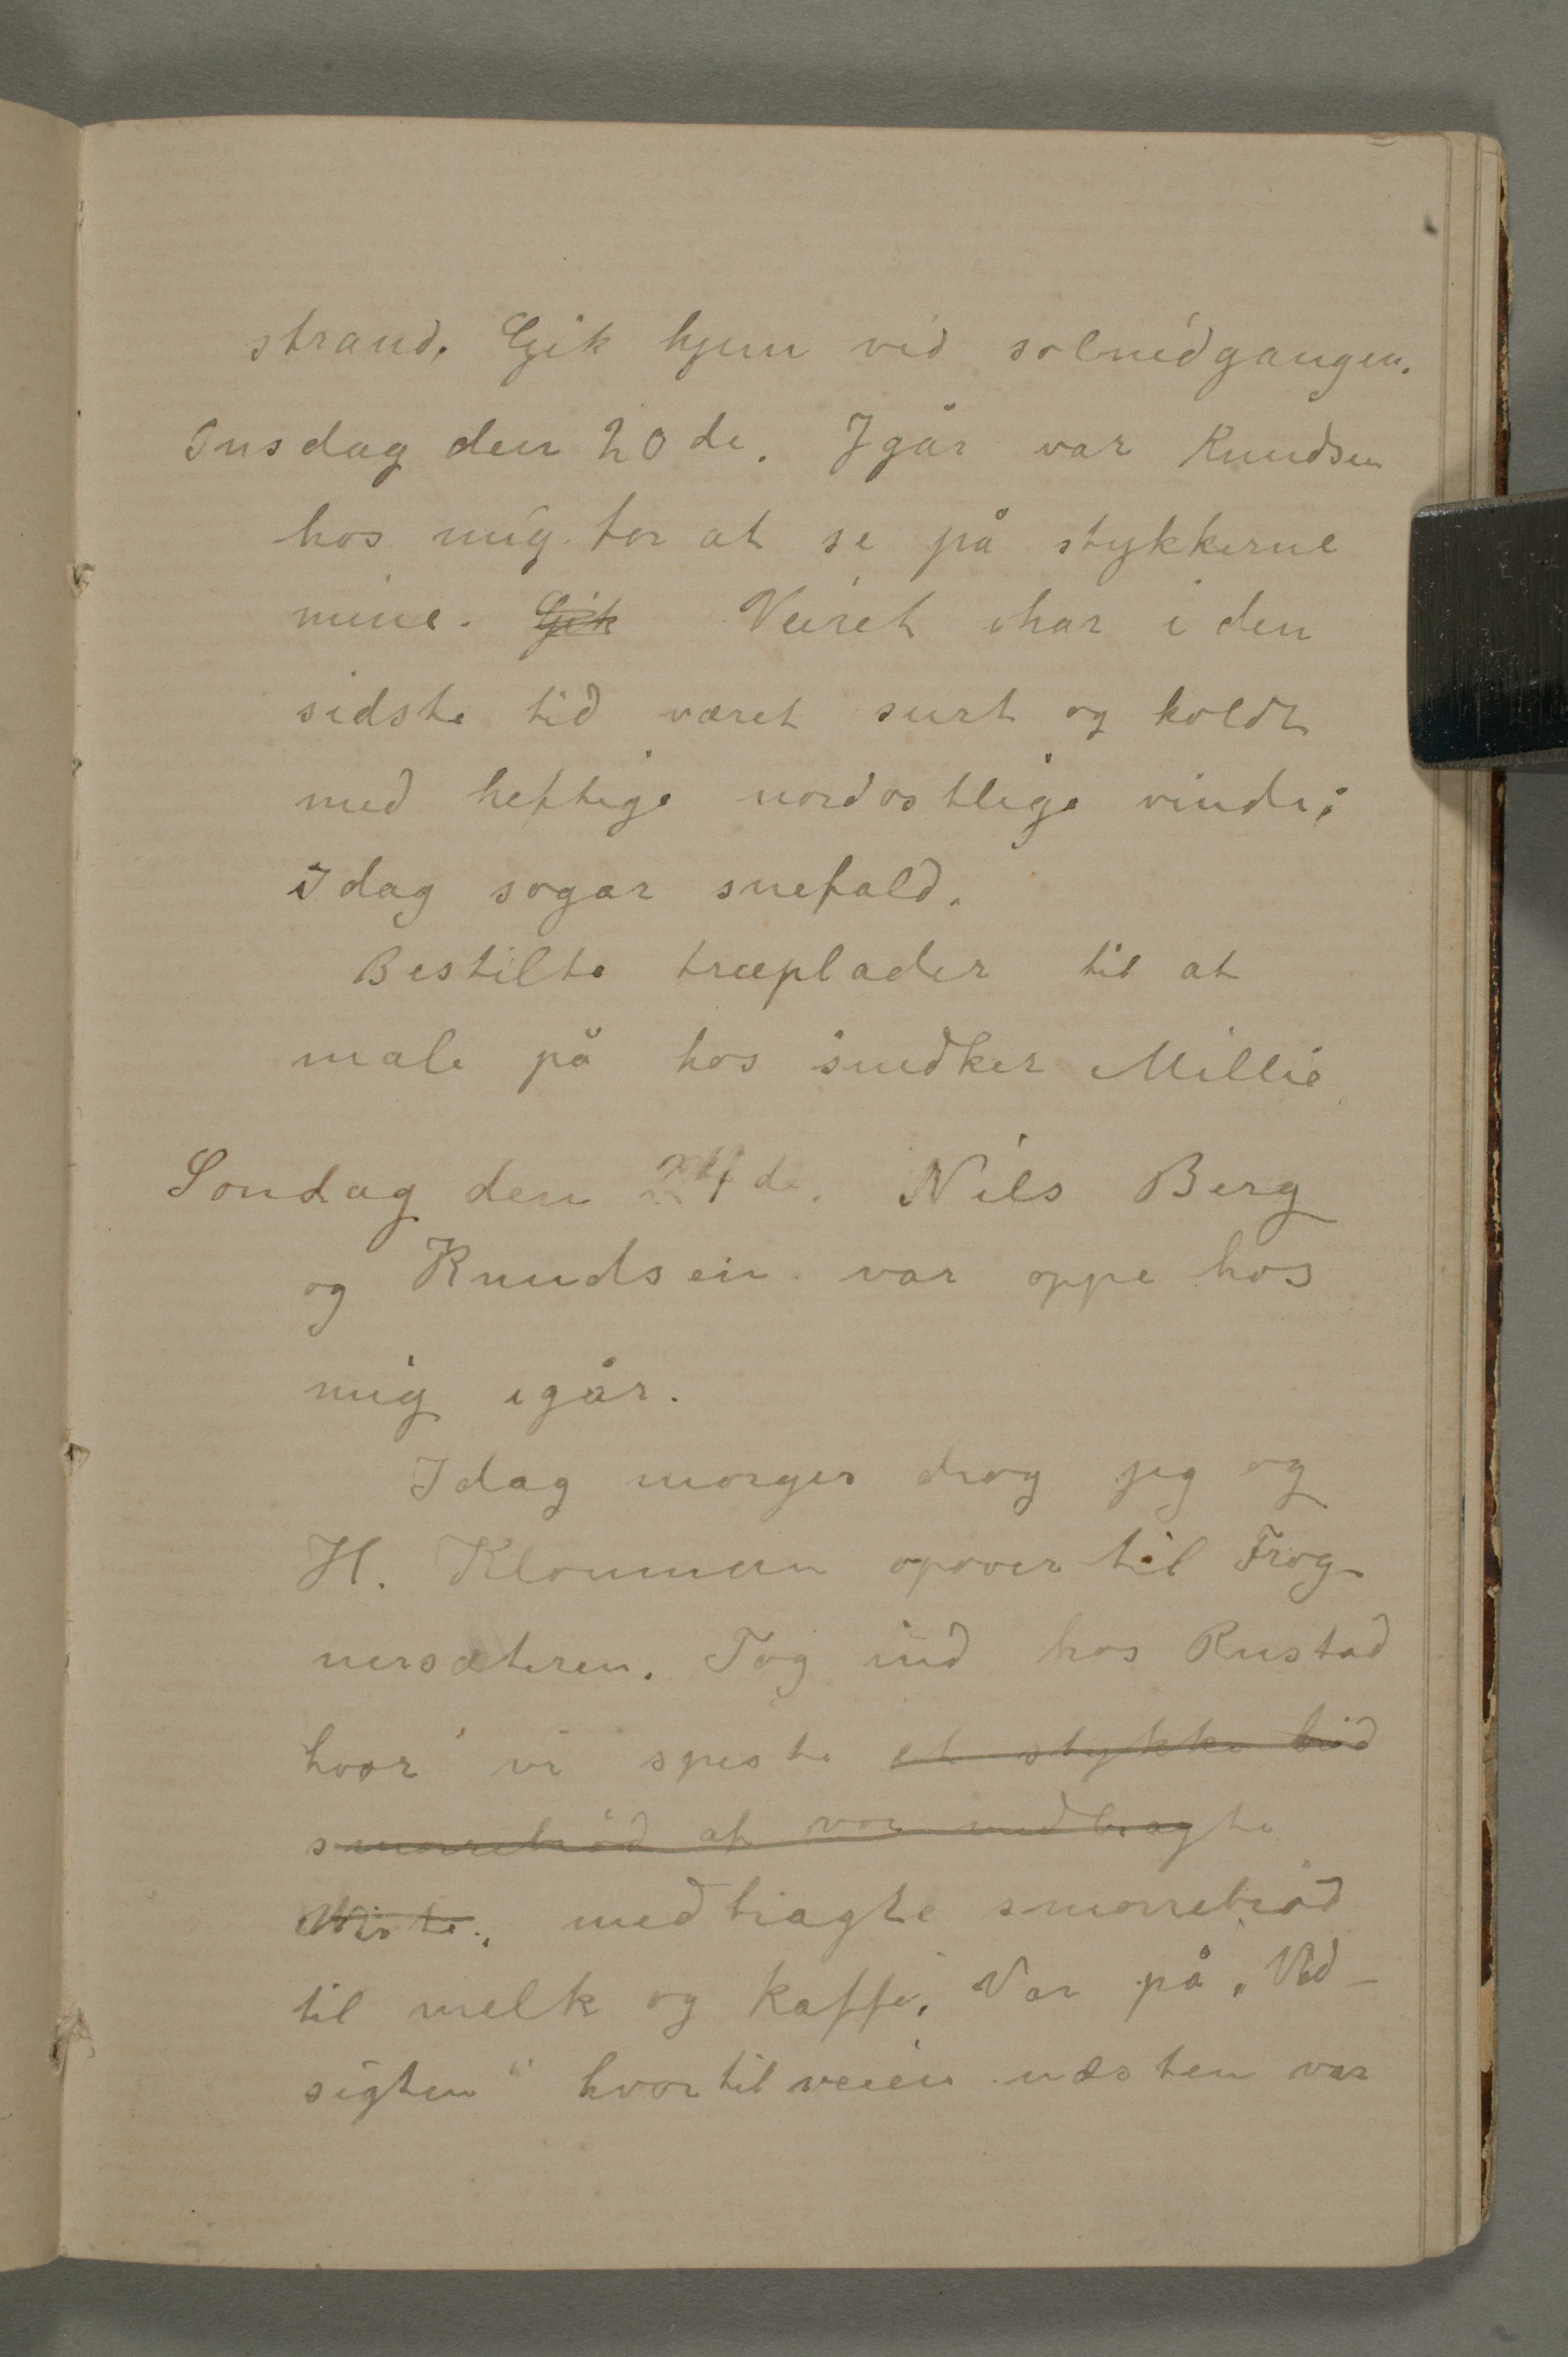 strand. Gik hjem vid solnedgangen.
Onsdag den 20de. Igår var Knudsen
hos mig for at se på stykkerne
mine. Gik Veiret har i den
sidste tid været surt og koldt
med heftige nordostlige vinde;
idag sogar snefald.
Bestilte træplader til at
male på hos snedker Millie
Sondag den 24de. Nils Berg
og Knudsen var oppe hos
mig igår.
Idag morges drog jeg og
H. Klouman opover til Frog-
nersæteren. Tog ind hos Rustad
hvor vi spiste et stykke
smorrebrød af vor medbragte
medbragte smorrebrød
til melk og kaffe. Var på „Ud-
sigten“ hvortil veien næsten var